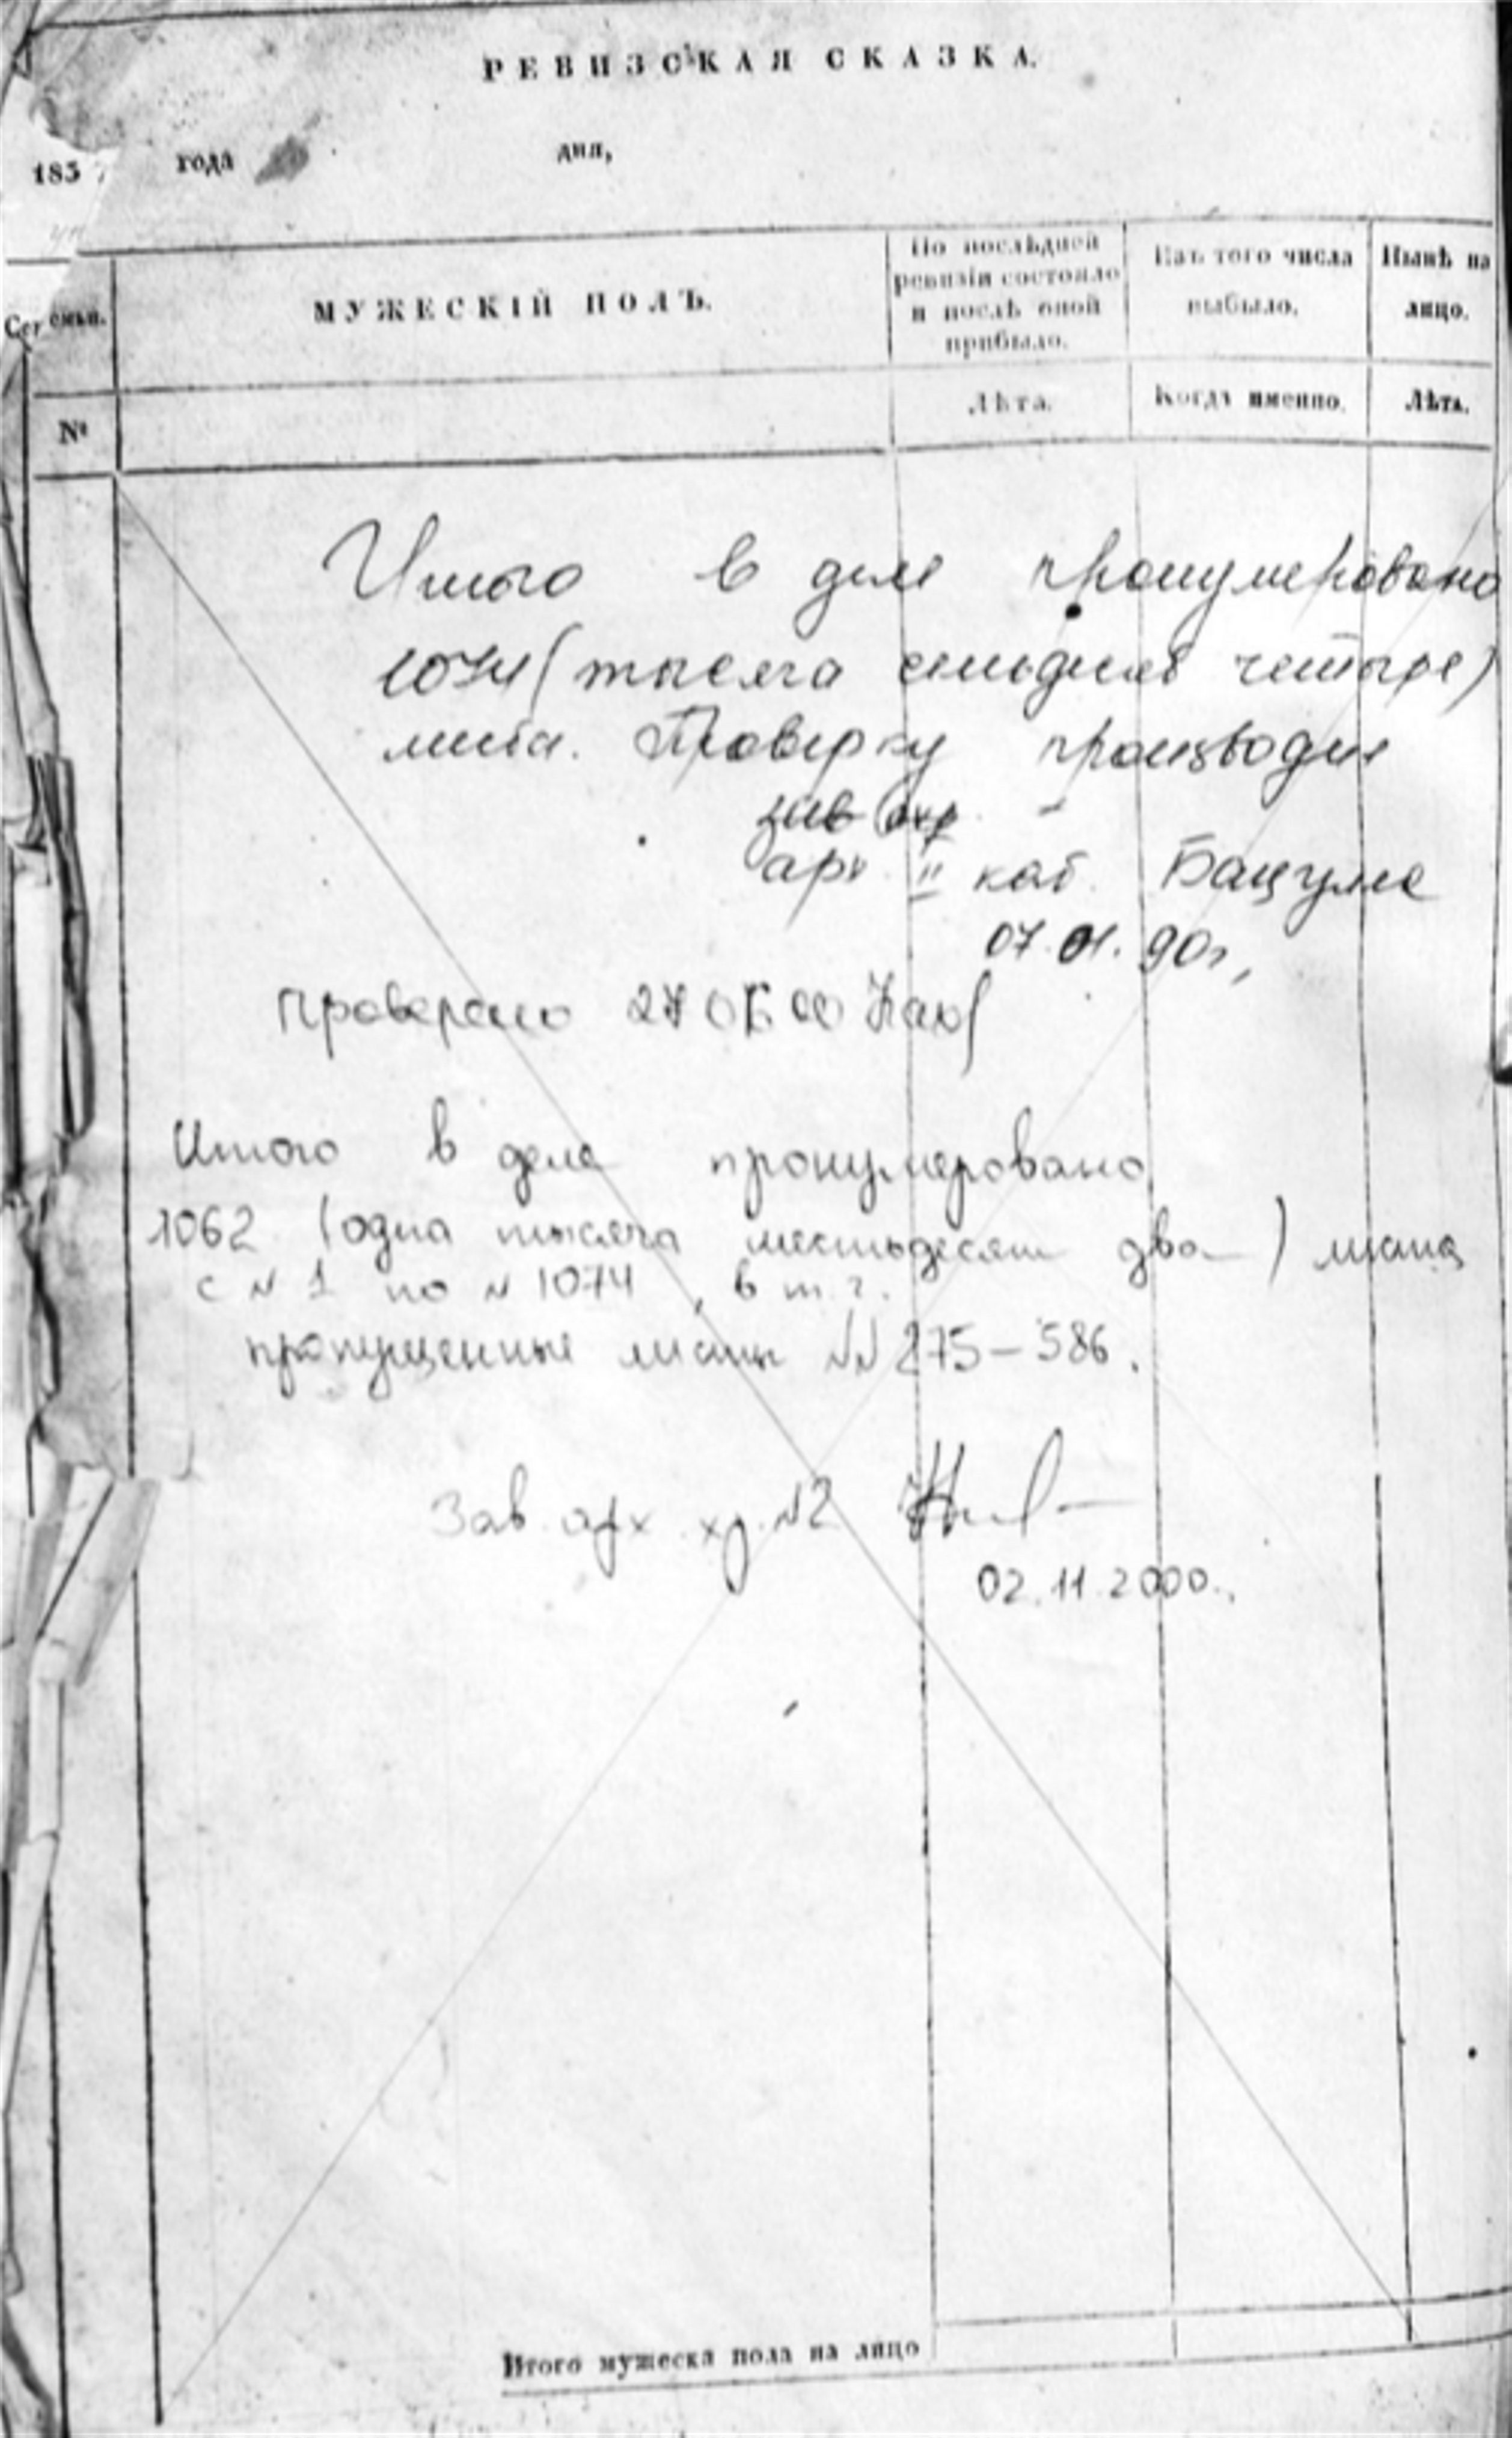 РЕВИЗСКАЯ СКАЗКА.
185 года дня,
Семьи.
МУЖЕСКІЙ ПОЛЪ.
По послѣдней ревизіи состояло и послѣ оной прибыло.
Изъ того числа выбыло.
Нынѣ на лицо.
№
Лѣта.
Когда именно.
Лѣта.
Итого в деле пронумеровано
1074 (тысяча семьдесят четыре)
листа. Проверку производил
зав
арх II кат. Бацулле
07.01.90г,
Проверено 27 00
Итого в деле пронумеровано
1062 (одна тысяча шестьдесят два) листа
с № 1 по № 1074, в т.ч.
пропущенные листы №№ 275-586.
Зав. арх. хр. №2
02.11.2000.
Итого мужеска пола на лицо